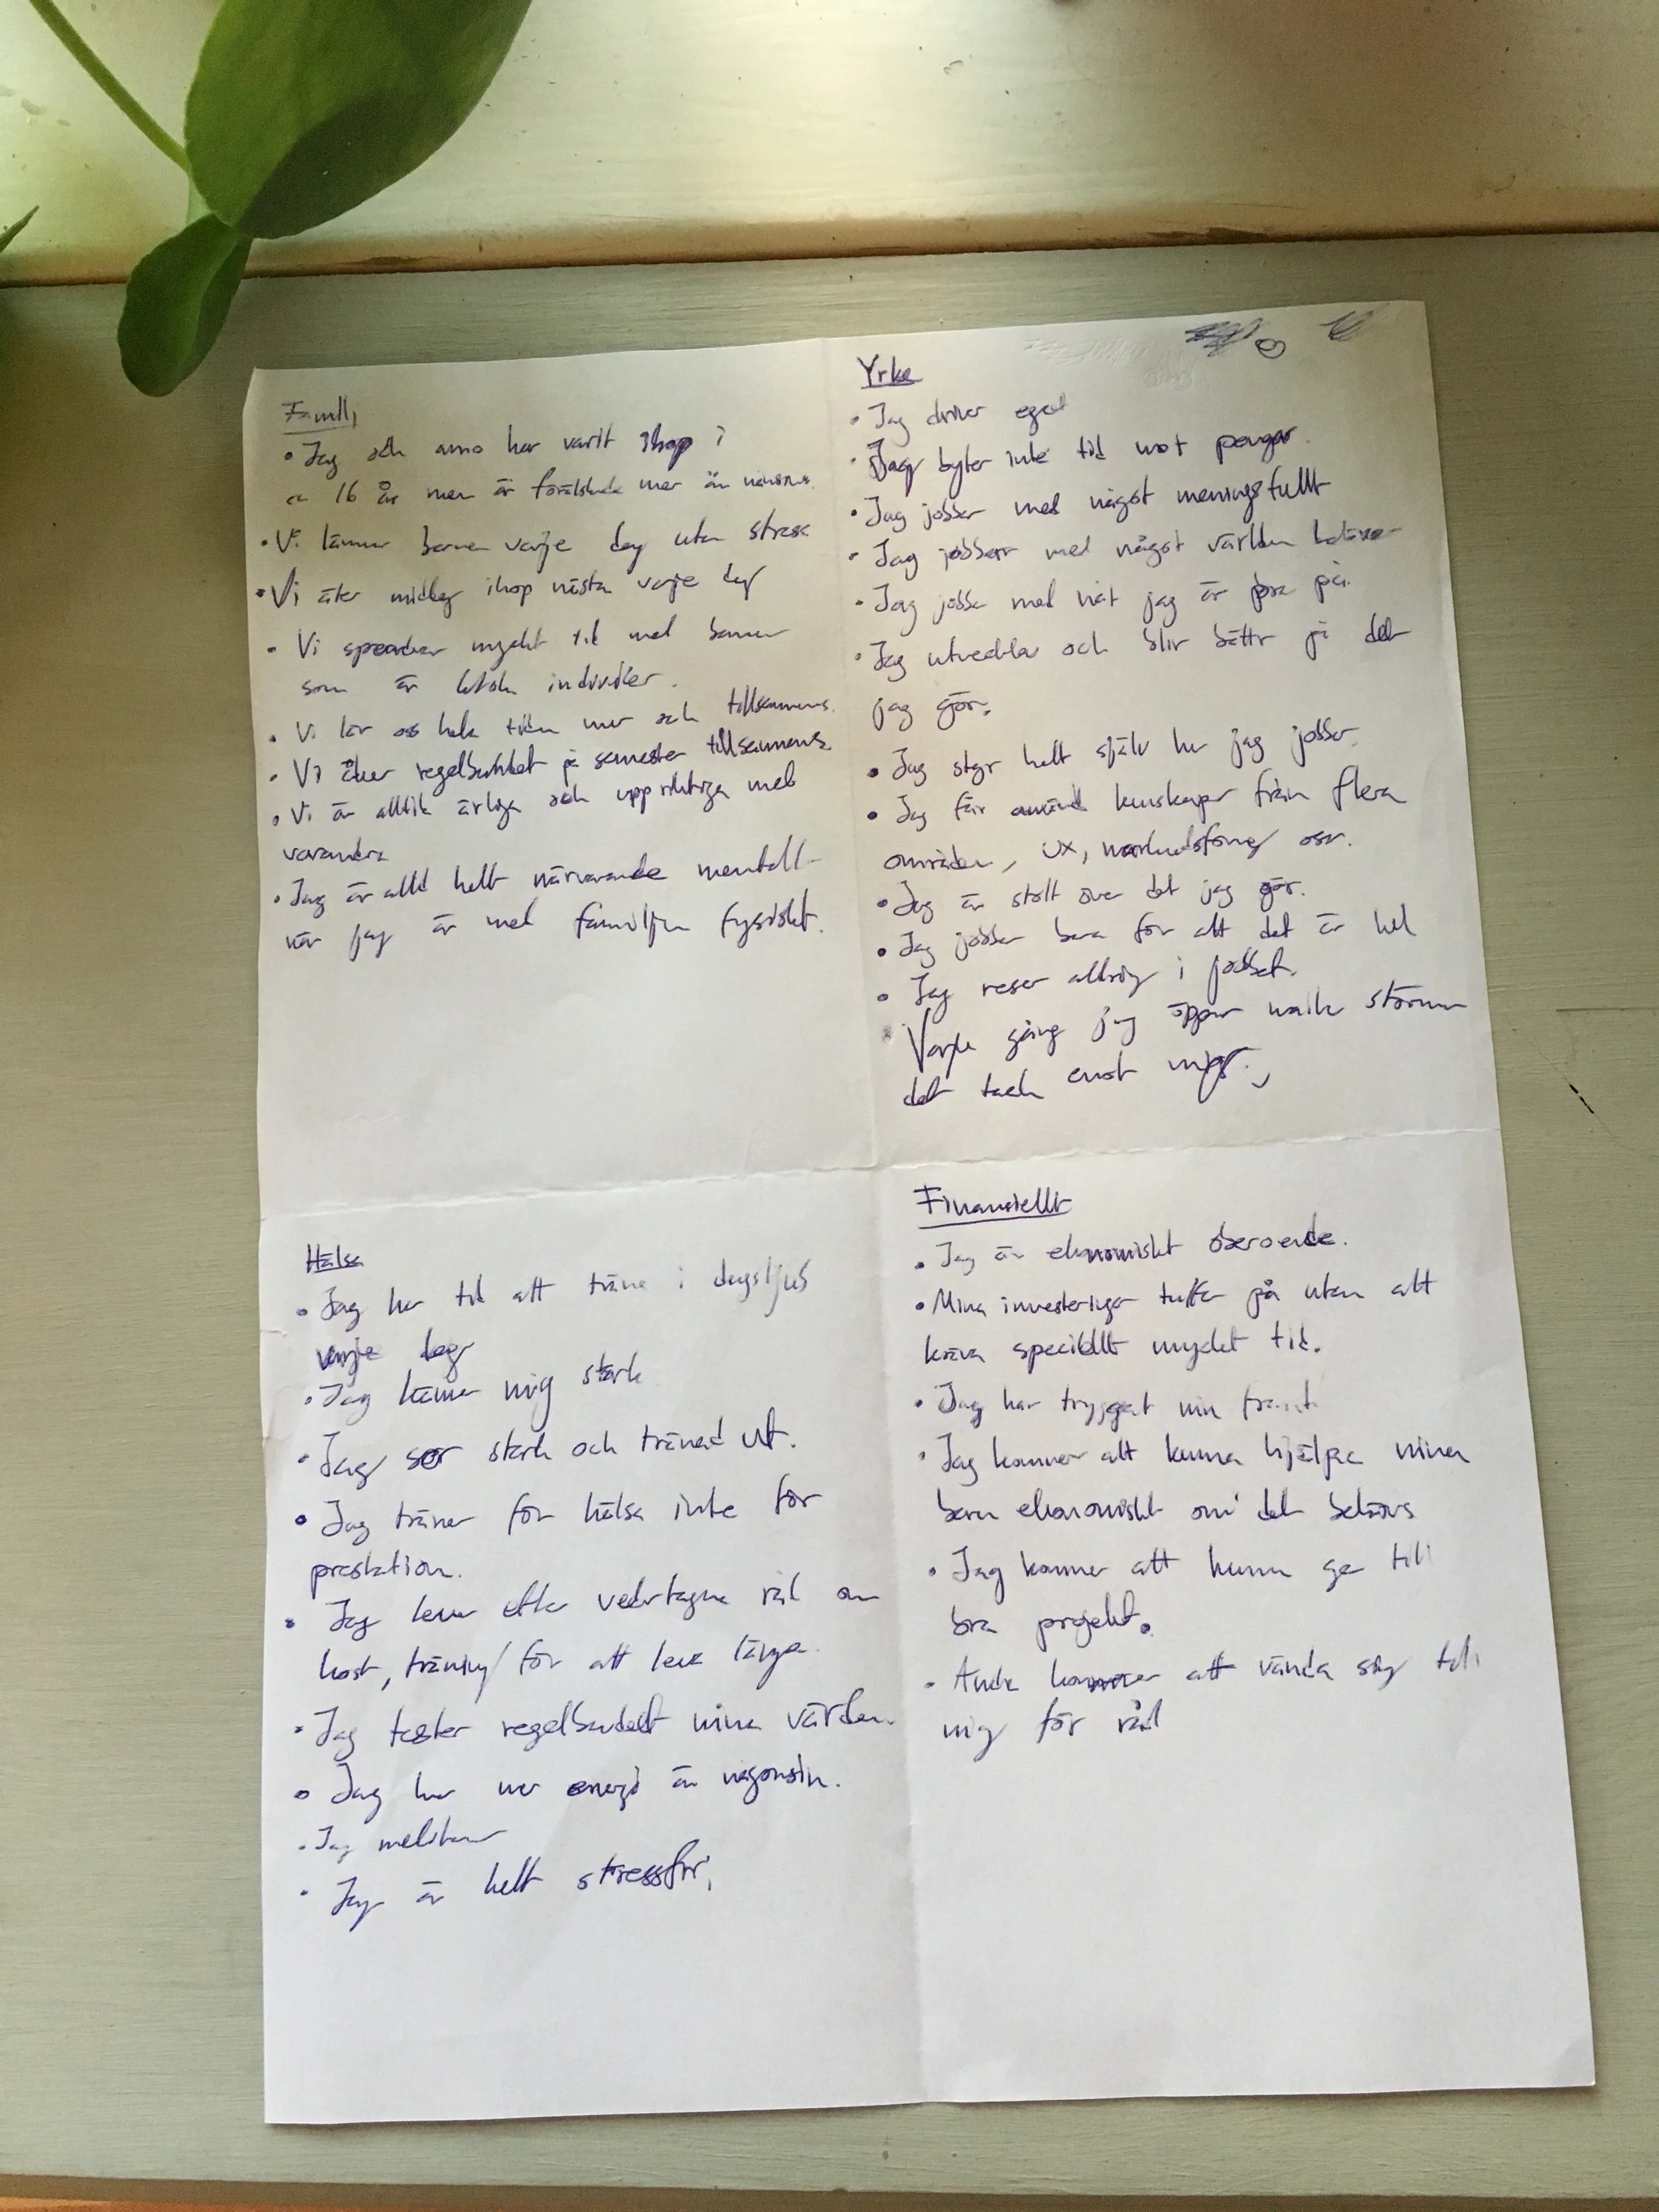 Familj
• Jag och anno har varit ihop i
ca 16 år men är förälskade mer än någonsin.
• Vi lämnar barnen varje dag utan stress
• Vi äter middag ihop nästa varje dag
• Vi spenderar mycket tid med barnen
som är individer.
• Vi lär oss hela tiden mer och tillsammans.
• Vi åker regelbundet på semester tillsammans.
• Vi är alltid ärliga och uppriktiga med
varandra
• Jag är alltid helt närvarande mentalt
när jag är med familjen fysiskt.
Yrke
• Jag driver eget
• Jag byter inte tid mot pengar.
• Jag jobbar med något meningsfullt
• Jag jobbar med något världen behöver
• Jag jobbar med nåt jag är bra på.
• Jag utvecklas och blir bättre på det
jag gör.
• Jag styr helt själv hur jag jobbar.
• Jag får använd kunskaper från flera
områden, UX, marknadsföring osv.
• Jag är stolt över det jag gör.
• Jag jobbar bara för att det är kul
• Jag reser aldrig i jobbet.
• Varje gång jag öppnar mailen strömmar
det tack emot mig.
Hälsa
• Jag har tid att träna i dagsljus
varje dag
• Jag känner mig stark
• Jag ser stark och tränad ut.
• Jag tränar för hälsa inte för
prestation.
• Jag lever efter vedertagna råd om
kost, träning för att leva länge.
• Jag testar regelbundet mina värden.
• Jag har mer energi än någonsin.
• Jag mediterar
• Jag är helt stressfri,
Finansiellt
• Jag är ekonomiskt oberoende.
• Mina investeringar tuffar på utan att
kräva speciellt mycket tid.
• Jag har tryggat min framt
• Jag kommer att kunna hjälpa mina
barn ekonomiskt om det behövs
• Jag kommer att kunna ge till
bra projekt.
• Andra kommer att vända sig till
mig för råd